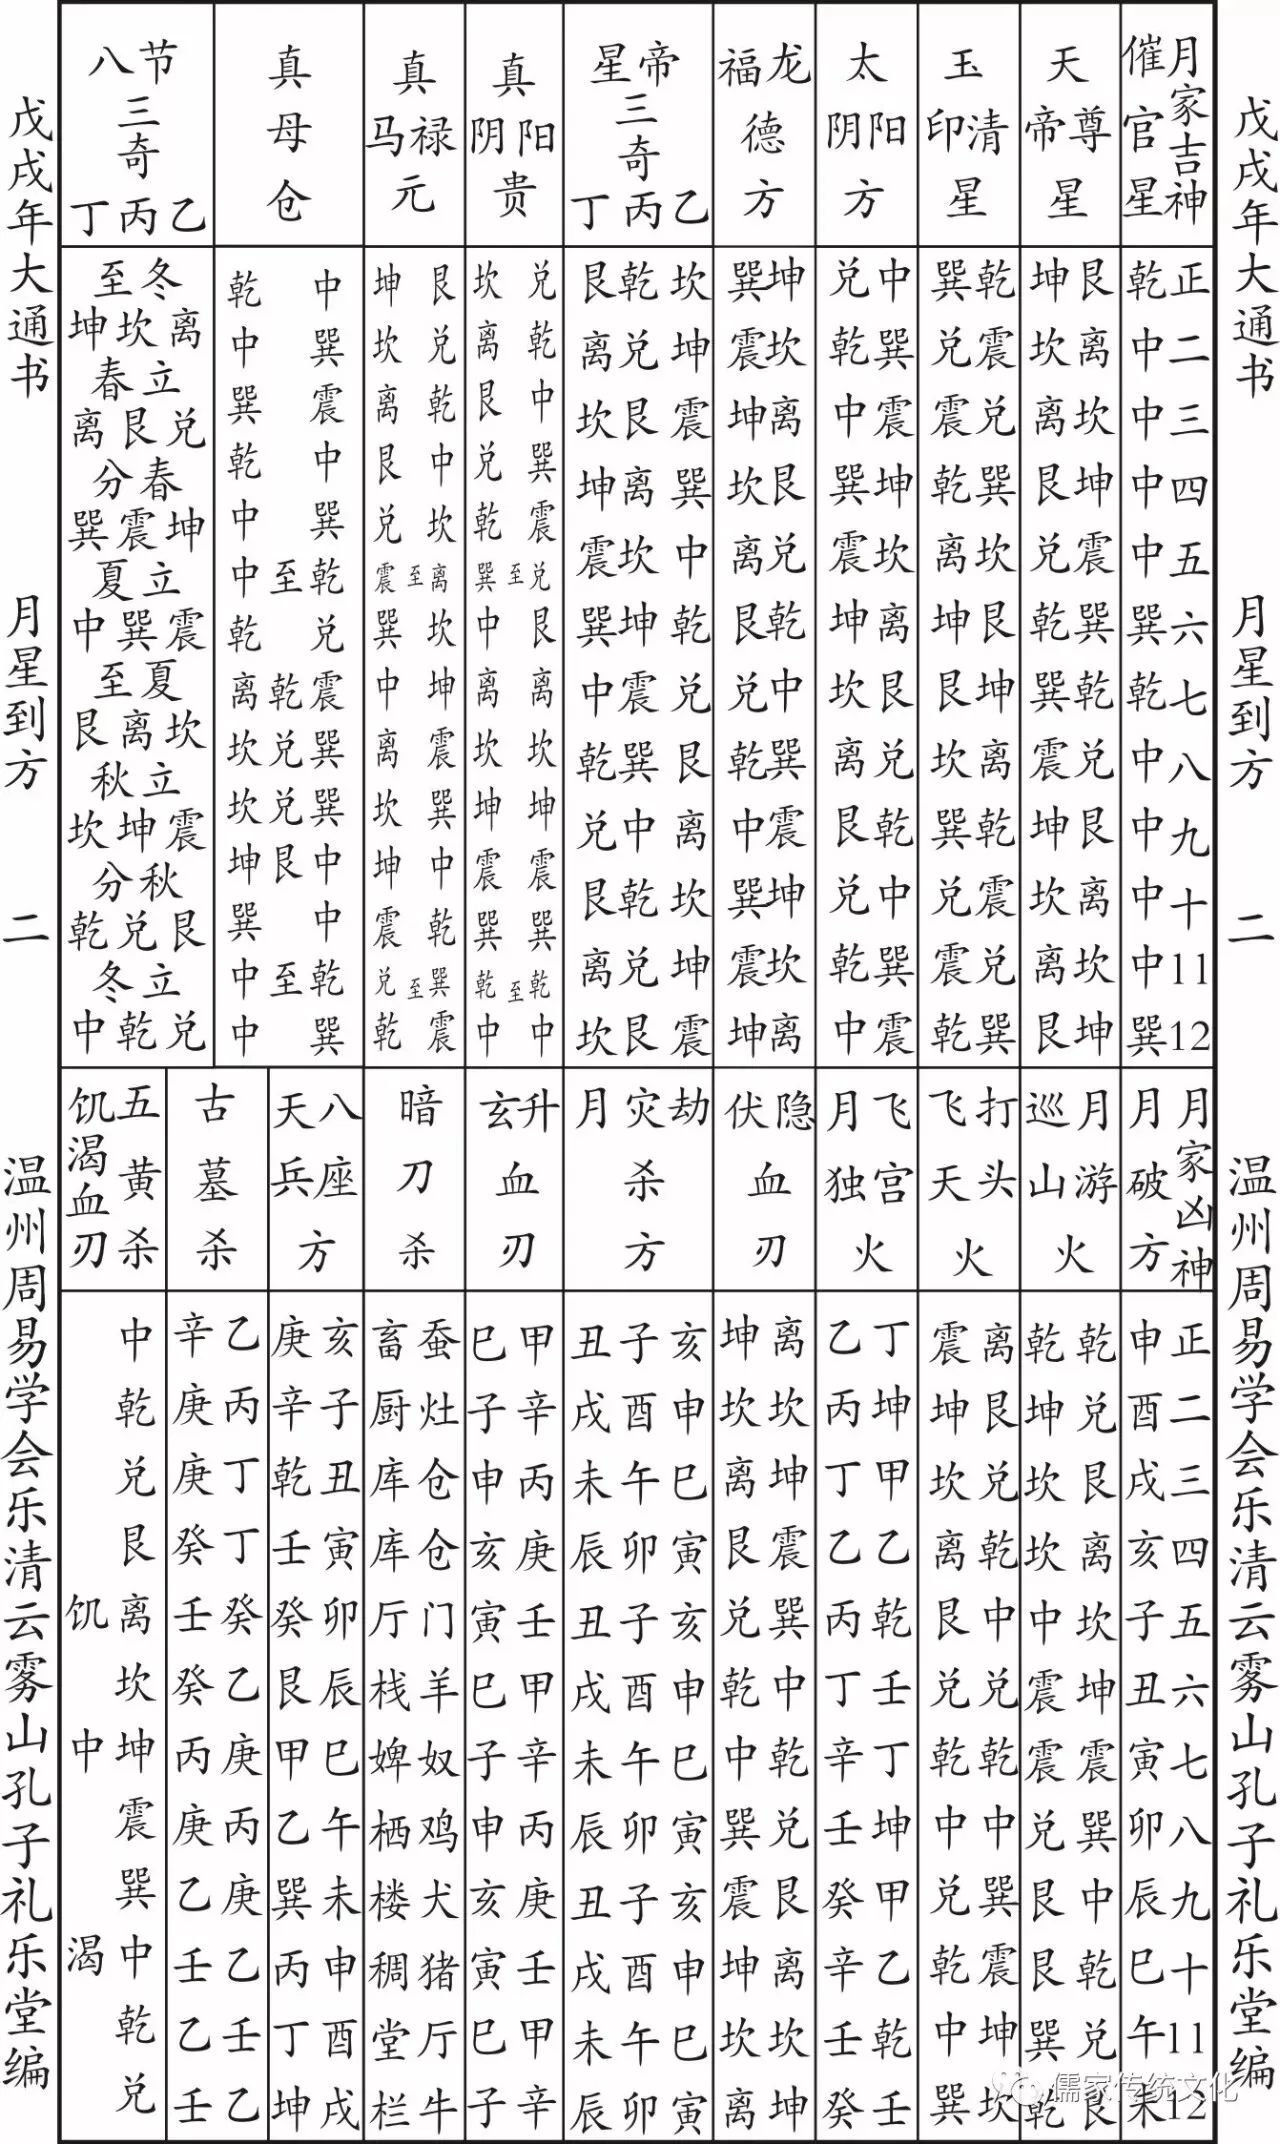 戊戌年大通书 月星到方 二 温州周易学会乐清云雾山孔子礼乐堂编
月家吉神
正二三四五六七八九十1112
催官星
乾中中中中巽乾中中中中巽
天尊帝星
艮离坎坤震巽乾兑艮离坎坤
坤坎离艮兑乾巽震坤坎离艮
玉清印星
乾震兑巽坎艮坤离乾震兑巽
巽兑震乾离坤艮坎巽兑震乾
太阳阴方
中巽震坤坎离艮兑乾中巽震
兑乾中巽震坤坎离艮兑乾中
龙福德方
坤坎离艮兑乾中巽震坤坎离
巽震坤坎离艮兑乾中巽震坤
帝星三奇乙丙丁
坎坤震巽中乾兑艮离坎坤震
乾兑艮离坎坤震巽中乾兑艮
艮离坎坤震巽中乾兑艮离坎
真阳阴贵
兑乾中巽震兑艮离坎坤震巽乾中
至至
坎离艮兑乾巽中离坎坤震巽乾中
真禄马元
艮兑乾中坎离坎坤震巽中乾巽震
至至
坤坎离艮兑震巽中离坎坤震兑乾
真母仓
中巽震中巽乾兑震巽巽中中乾巽
至乾兑兑艮至
乾中巽乾中中乾离坎坎坤巽中中
八节三奇乙丙丁
冬至
离坎坤
立春
兑艮离
春分
坤震巽
立夏
震巽中
夏至
坎离艮
立秋
震坤坎
秋分
艮兑乾
立冬
兑乾中
月家凶神
正二三四五六七八九十1112
月破方
申酉戌亥子丑寅卯辰巳午未
月游巡山火
乾兑艮离坎坤震巽中乾兑艮
乾坤坎坎中震震兑艮艮巽乾
打头飞天火
离艮兑乾中兑乾中巽震坤坎
震坤坎离艮兑乾中兑乾中巽
飞宫月独火
丁坤甲乙乾壬丁坤甲乙乾壬
乙丙丁乙丙丁辛壬癸辛壬癸
隐伏血刃
离坎坤震巽中乾兑艮离坎坤
坤坎离艮兑乾中巽震坤坎离
劫灾月杀方
亥申巳寅亥申巳寅亥申巳寅
子酉午卯子酉午卯子酉午卯
丑戌未辰丑戌未辰丑戌未辰
升玄血刃
甲辛丙庚壬甲辛丙庚壬甲辛
巳子申亥寅巳子申亥寅巳子
暗刀杀
蚕灶仓仓门羊奴鸡犬猪厅牛
畜厨库库厅栈婢栖楼稠堂栏
八座天兵方
亥子丑寅卯辰巳午未申酉戌
庚辛乾壬癸艮甲乙巽丙丁坤
古墓杀
乙丙丁丁癸乙庚丙庚乙壬乙
辛庚庚癸壬癸丙庚乙壬乙壬
五黄杀
饥渴血刃
中乾兑艮离坎坤震巽中乾兑
饥中渴
戊戌年大通书 月星到方 二 温州周易学会乐清云雾山孔子礼乐堂编
儒家传统文化